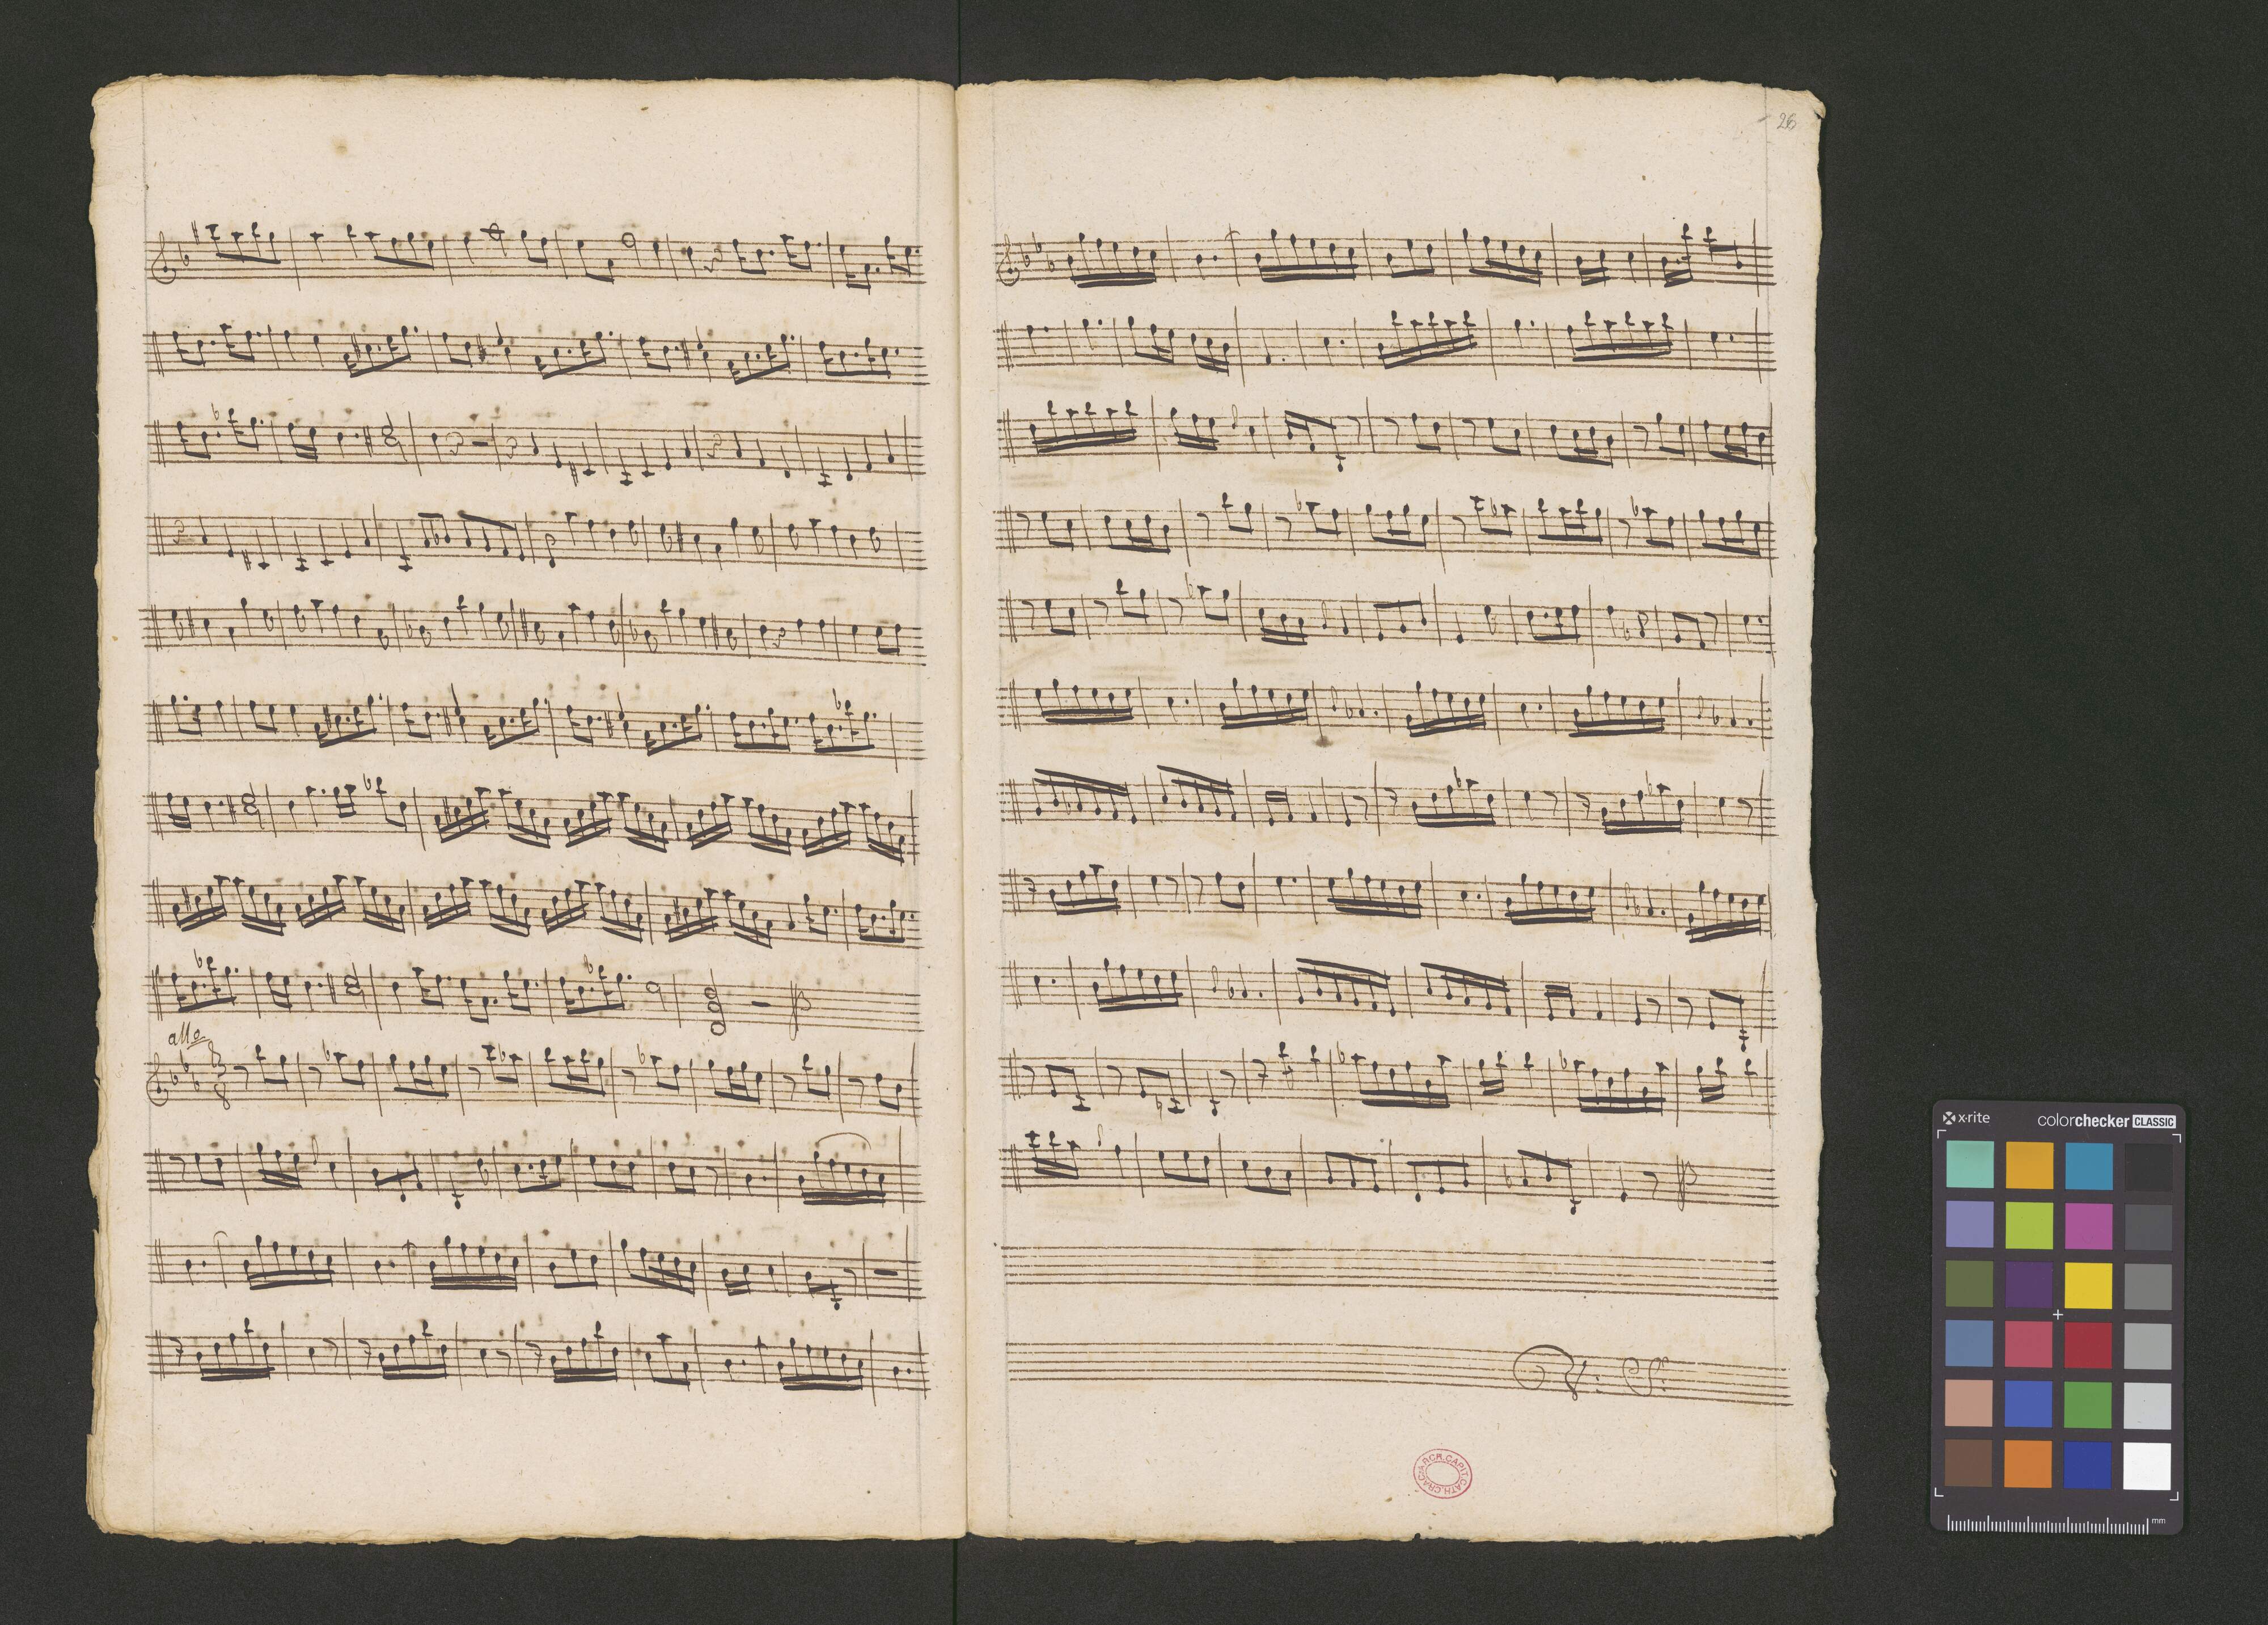 allo
3
8
26
V: S:
ARCH. CAPIT. CATH. CRAC.
x-rite
colorchecker CLASSIC
mm